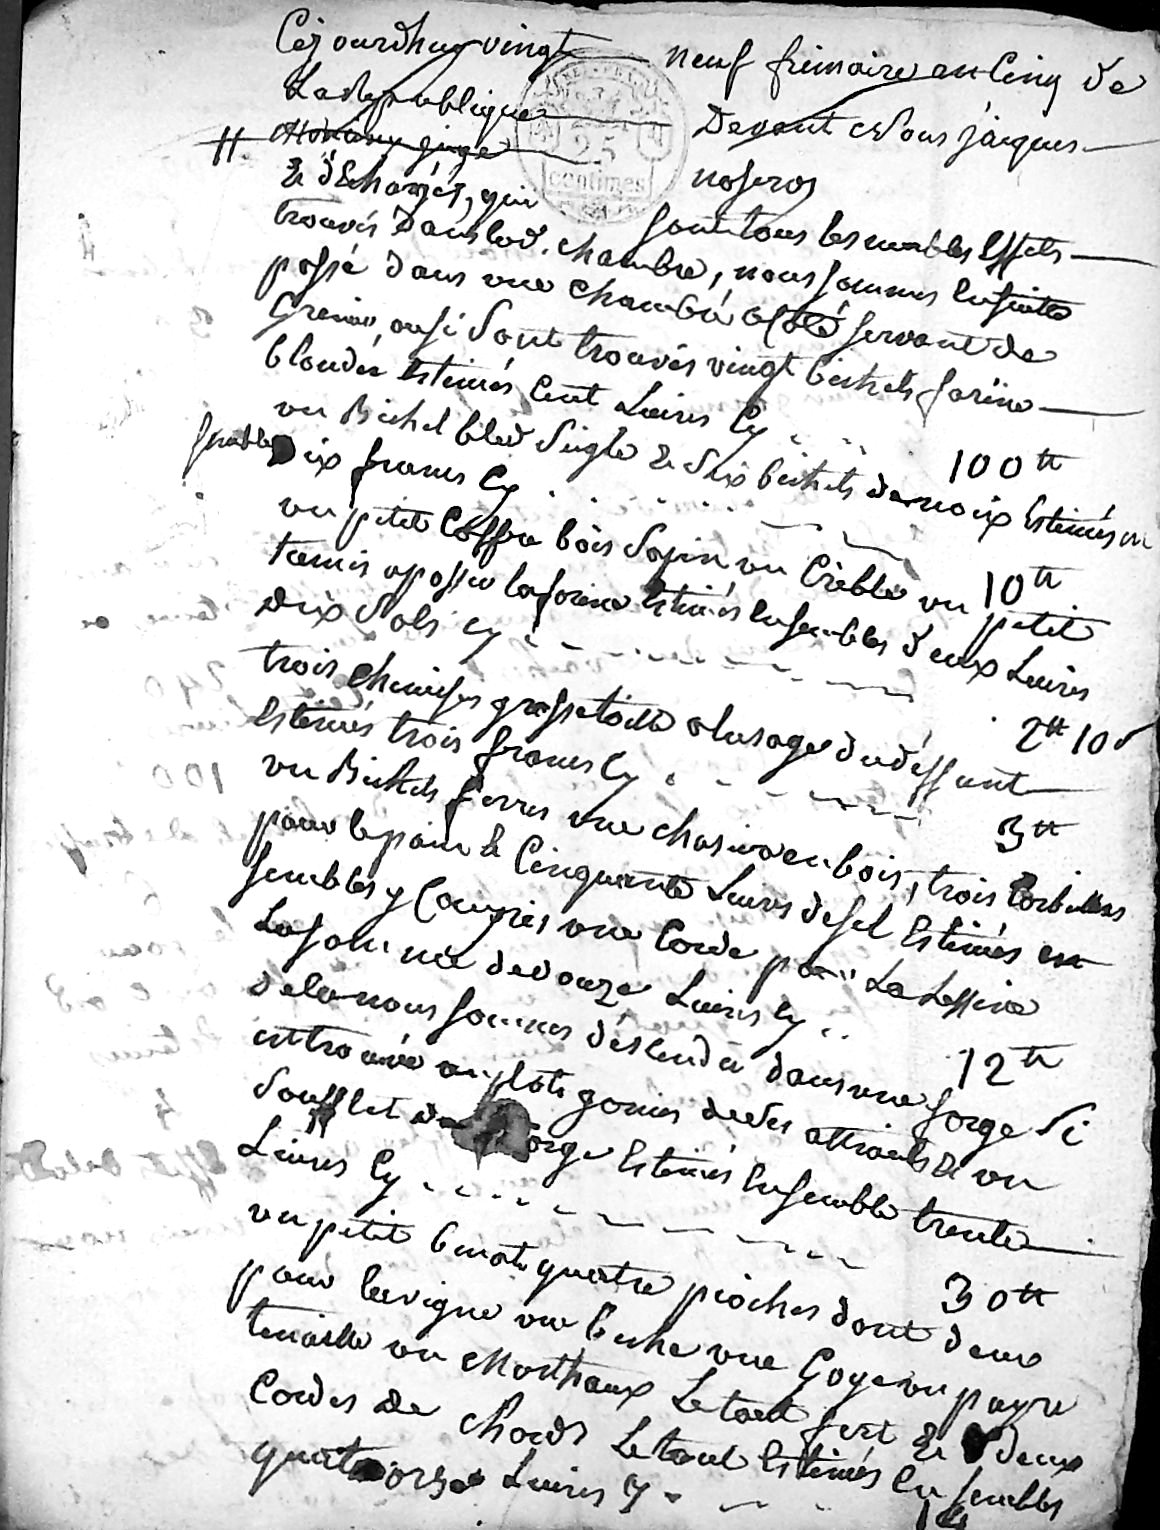 Cejourdhuy vingt neuf frimaire an Cinq de
La Republique Devant Nous jacques
notaros
25
centimes
& déchargés, qui sont tous les meubles Effets
trouvés dans lad. chambre, nous sommes Ensuitte
passé dans une chambre a Coté servant de
Grenier, ou si sont trouvés vingt bichets farine
blondée Estimés Cent Livres Cy 100 tt
un Bichet bled Seigle & Six bichets de noix Estimés en
semble Dix francs Cy 10 tt
un petit Coffre bois Sapin un Crible un petit
tamis a passer la farine Estimés Ensembles deux Livres
dix Sols cy 2 tt 10 s
trois chemises grosse toille a lusage du deffunt
Estimés trois francs Cy 3 tt
un Bichet ferré une en bois, trois Corbeilles
pour le pain & Cinquante Livres de sel Estimés en
sembles y Compris une Corde pour La Lessive
La somme de douze Livres Cy 12 tt
dela nous sommes désendu dans une forge Si
est trouvé un garnis de ses attraits & un
Soufflet de forge Estimés Ensemble trente
Livres Cy 30 tt
un petit quatre pioches dont deux
pour la vigne une beche une Goye un payre
tenaille un Marthaux Le tout fert & deux
Cordes de Le tout Estimés Ensembles
quatorze Livres Cy 14